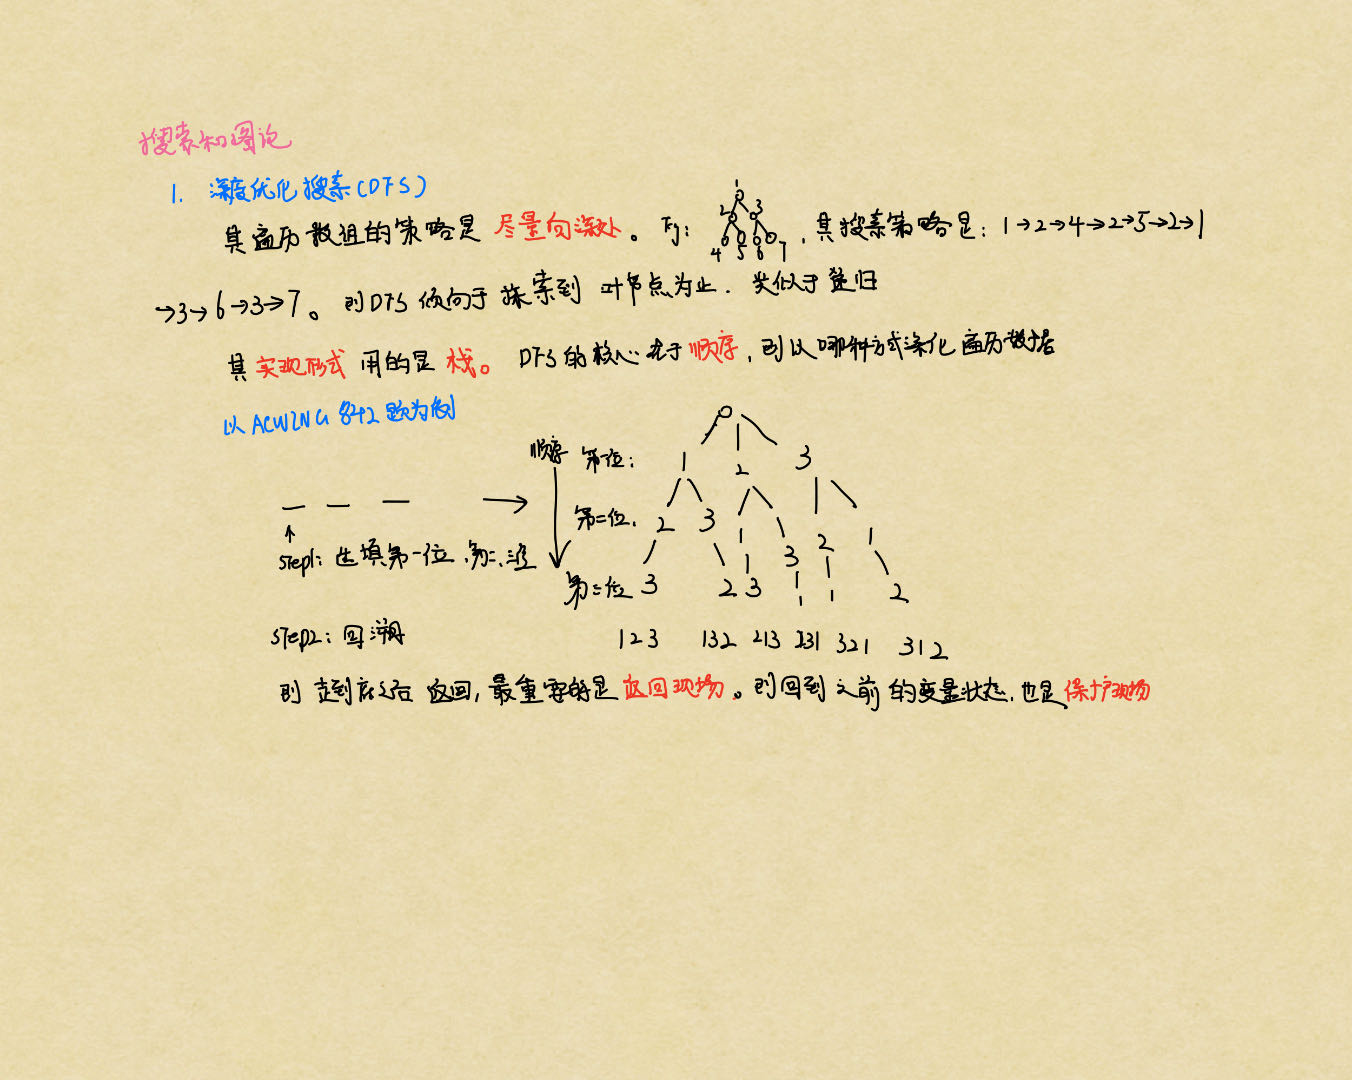 搜索和图论
1. 深度优化搜索(DFS)
其遍历数组的策略是 尽量向深处。Eg: 1 2 3 4 5 6 7 , 其搜索策略是: 1→2→4→2→5→2→1
→3→6→3→7。则DFS倾向于探索到 叶节点为止. 类似于递归
其实现形式 用的是 栈。 DFS的核心在于顺序, 则以哪种方式深化遍历数据
以ACWING 842题为例
顺序 第一位: 1 2 3
第二位. 2 3 1 3 2 1
step1: 选填第一位、第二、三位
第三位 3 2 3 1 1 2
step2: 回溯 123 132 213 231 321 312
则 走到底之后 返回, 最重要的是 返回现场。则回到之前的变量状态. 也是保护现场